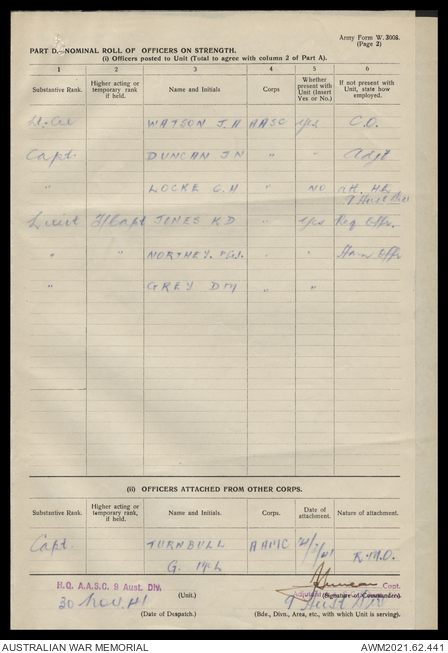 Army Form W. 3008.
(Page 2)
PART D.—NOMINAL ROLL OF OFFICERS ON STRENGTH.
(i) Officers posted to Unit (Total to agree with column 2 of Part A).
1 2 3 4 5 6
Substantive Rank. Higher acting or temporary rank if held. Name and Initials Corps Whether present with Unit (Insert Yes or No.) If not present with Unit, state how employed.
Lt. Col WATSON J.A AASC yes C.O.
Capt. DUNCAN J N " " Adjt
" LOCKE C. H " NO att. HQ
9 Aust Div
Lieut T/Capt JONES K D " yes Req Offr.
" " NORTHEY. " " Offr
" GREY D M " "
(ii) OFFICERS ATTACHED FROM OTHER CORPS.
Substantive Rank. Higher acting or temporary rank, if held. Name and Initials. Corps. Date of attachment. Nature of attachment.
Capt. TURNBULL AAMC R.M.O.
G.
H.Q. A.A.S.C. 9 Aust. Div. (Unit.) Duncan Capt.
Adjutant (Signature of Commander).
30 Nov. 41 9 Aust Div
(Date of Despatch.) (Bde., Divn., Area, etc., with which Unit is serving).
AUSTRALIAN WAR MEMORIAL AWM2021.62.441